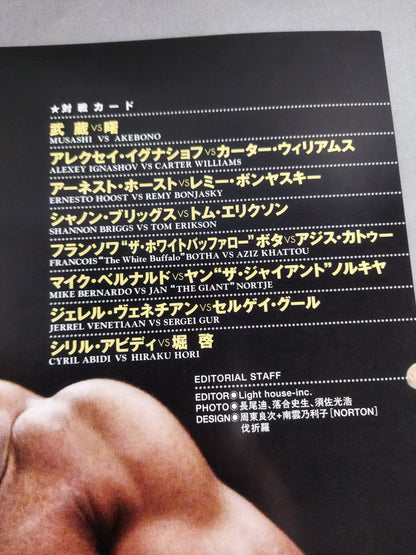 ★対戦カード
武 蔵vs曙
MUSASHI VS AKEBONO
アレクセイ・イグナショフvsカーター・ウィリアムス
ALEXEY IGNASHOV VS CARTER WILLIAMS
アーネスト・ホーストvsレミー・ボンヤスキー
ERNESTO HOOST VS REMY BONJASKY
シャノン・ブリッグスvsトム・エリクソン
SHANNON BRIGGS VS TOM ERIKSON
フランソワ“ザ・ホワイトバッファロー”ボタvsアジス・カトゥー
FRANCOIS "The White Buffalo" BOTHA VS AZIZ KHATTOU
マイク・ベルナルドvsヤン“ザ・ジャイアント”ノルキヤ
MIKE BERNARDO VS JAN "THE GIANT" NORTJE
ジェレル・ヴェネチアンvsセルゲイ・グール
JERREL VENETIAAN VS SERGEI GUR
シリル・アビディvs堀 啓
CYRIL ABIDI VS HIRAKU HORI
EDITORIAL STAFF
EDITOR●Light house-inc.
PHOTO●長尾迪、落合史生、須佐光浩
DESIGN●周東良次+南雲乃利子[NORTON]
伐折羅